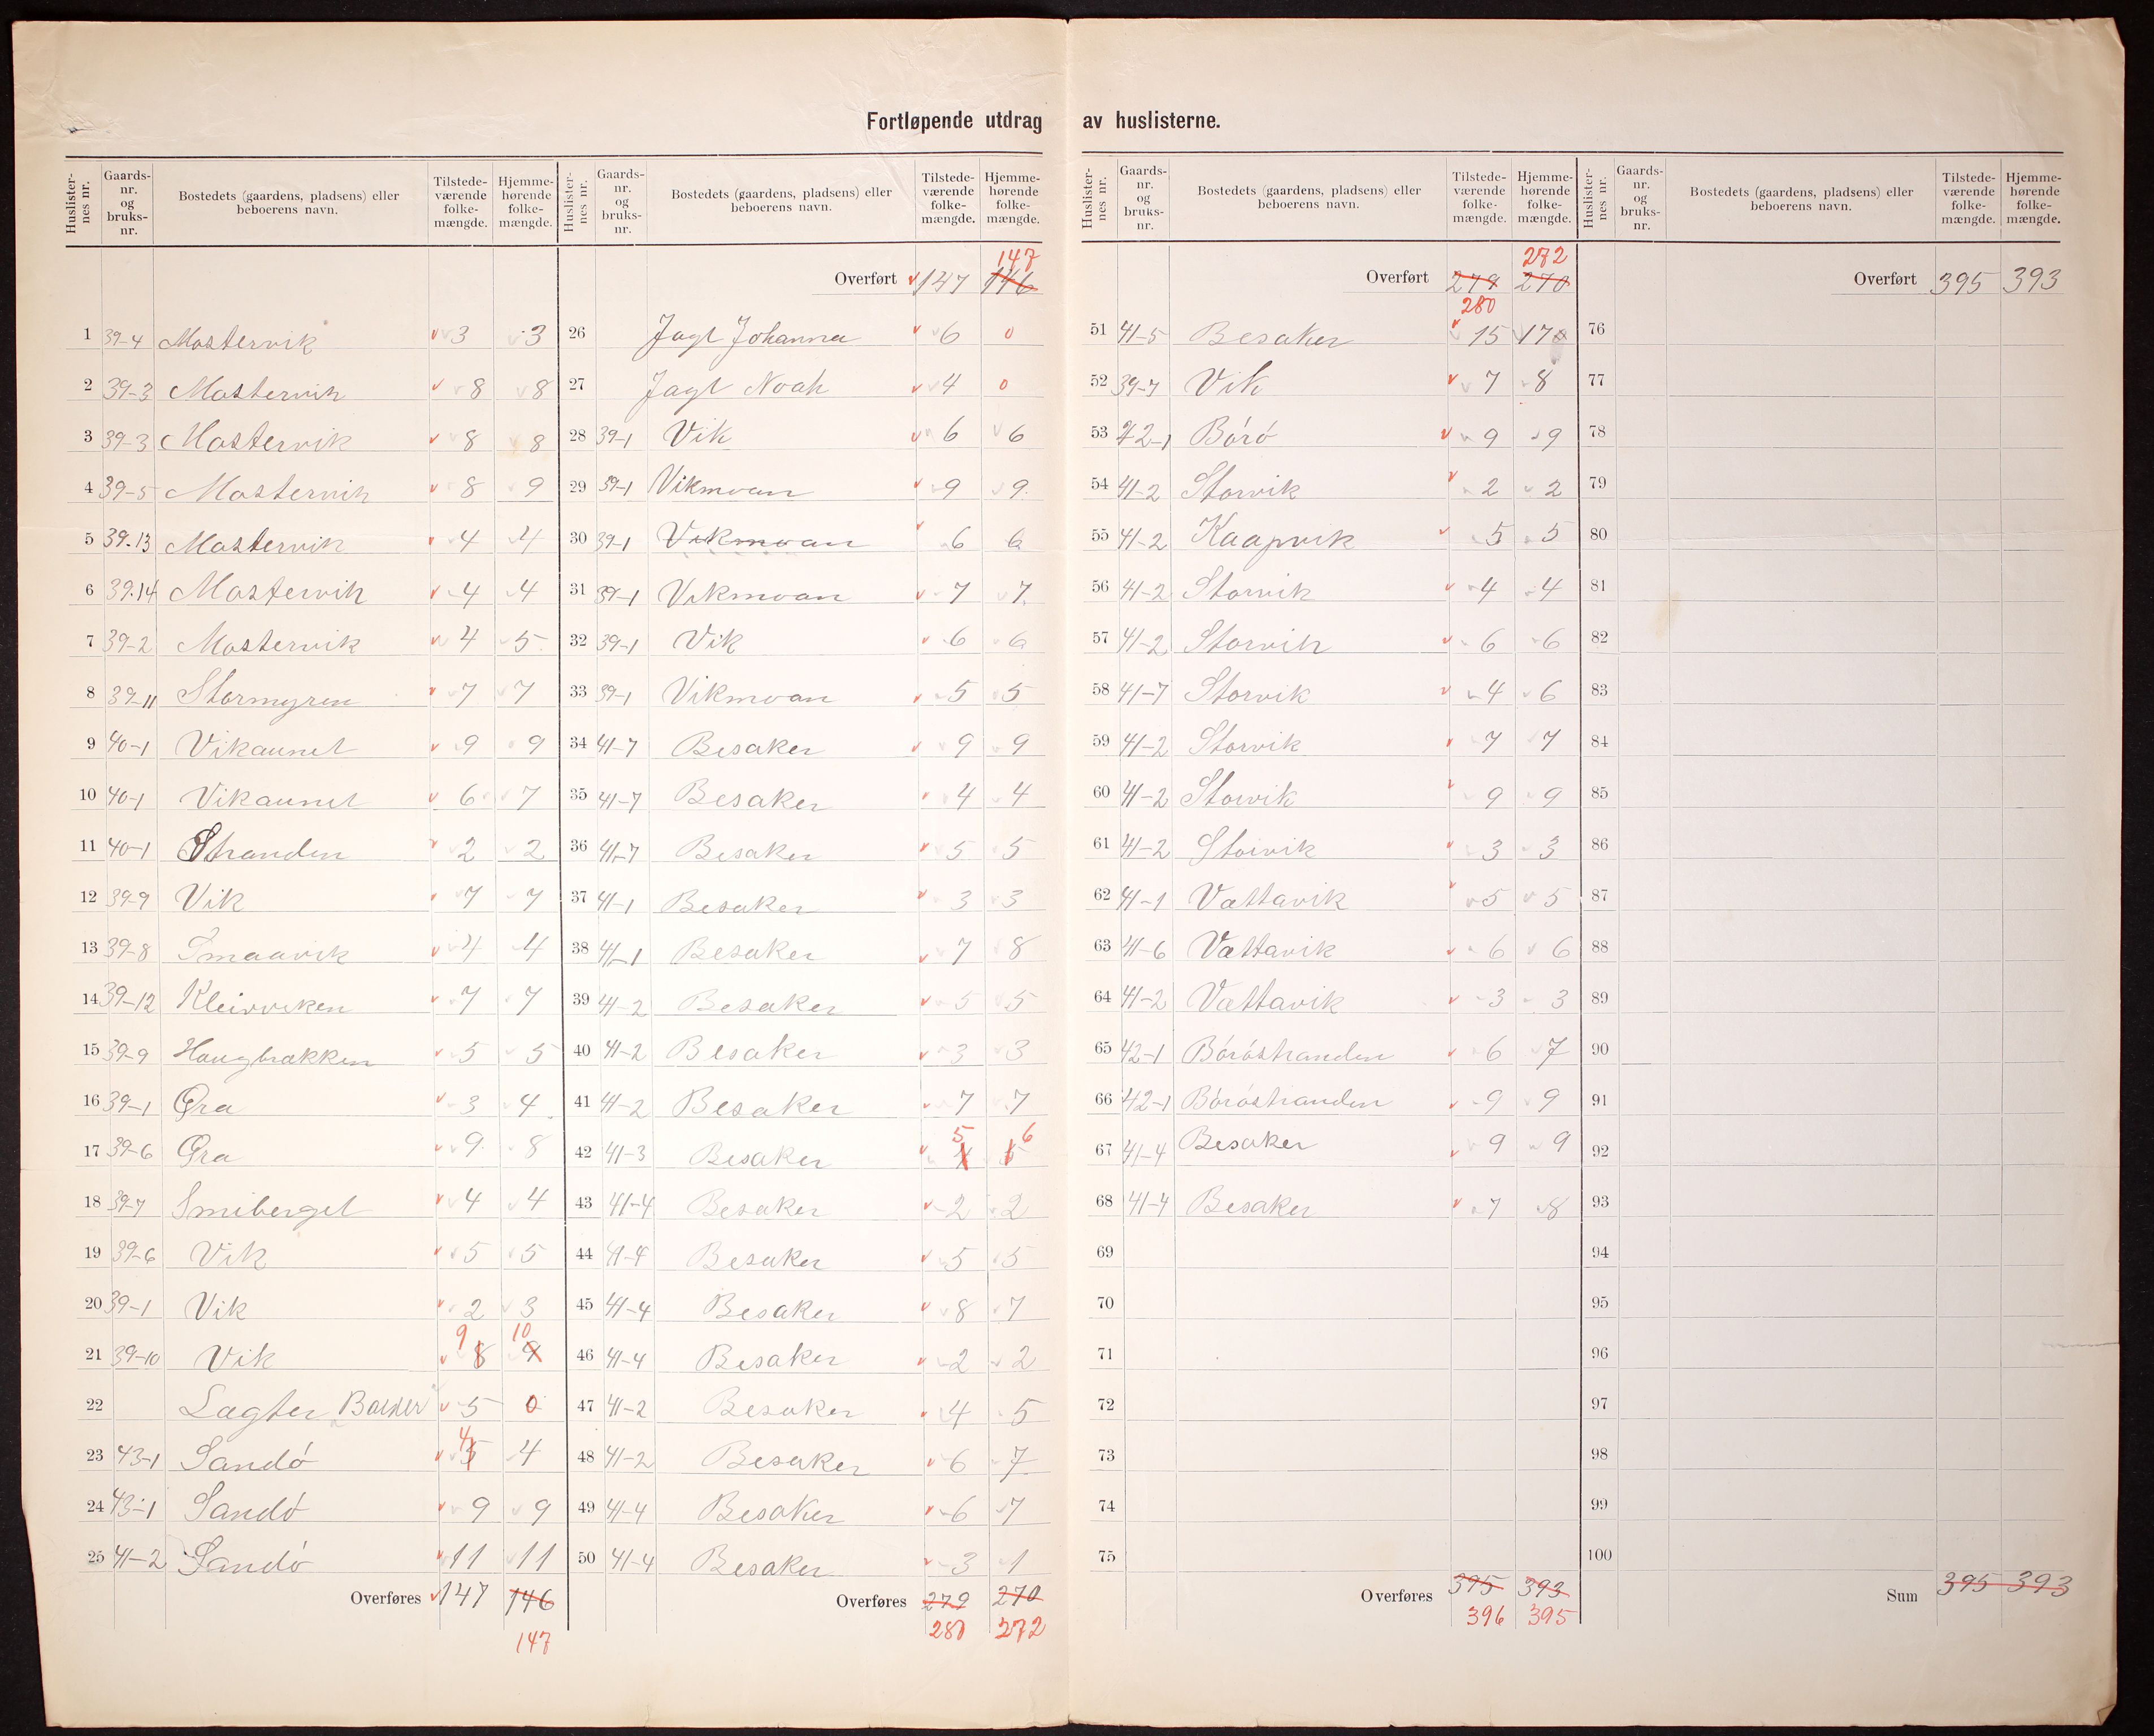 Fortløpende utdrag av huslisterne.
Huslisternes nr. Gaards-nr. og bruks-nr. Bostedets (gaardens, pladsens) eller beboerens navn. Tilstedeværende folkemængde. Hjemmehørende folkemængde.
1 39-4 Mastervik 3 3
2 39-3 Mastervik 8 8
3 39-3 Mastervik 8 8
4 39-5 Mastervik 8 9
5 39.13 Mastervik 4 4
6 39.14 Mastervik 4 4
7 39-2 Mastervik 4 5
8 39-11 Stormyren 7 7
9 40-1 Vikaunet 9 9
10 40-1 Vikaunet 6 7
11 40-1 Stranden 2 2
12 39-9 Vik 7 7
13 39-8 Smaavik 4 4
14 39-12 Kleivviken 7 7
15 39-9 Haugbakken 5 5
16 39-1 Øra 3 4
17 39-6 Øra 9 8
18 39-7 Smiberget 4 4
19 39-6 Vik 5 5
20 39-1 Vik 2 3
9 10
21 39-10 Vik 8 9
22 Lægter Barker 5 0
4
23 43-1 Sandø 5 4
24 43-1 Sandø 9 9
25 41-2 Sandø 11 11
Overføres 147 146
147
Huslisternes nr. Gaards-nr. og bruks-nr. Bostedets (gaardens, pladsens) eller beboerens navn. Tilstedeværende folkemængde. Hjemmehørende folkemængde.
147
Overført 147 146
26 Jagt Johanna 6 0
27 Jagt Noah 4 0
28 39-1 Vik 6 6
29 39-1 Vikmoan 9 9
30 39-1 Vikmoan 6 6
31 39-1 Vikmoan 7 7
32 39-1 Vik 6 6
33 39-1 Vikmoan 5 5
34 41-7 Besaker 9 9
35 41-7 Besaker 4 4
36 41-7 Besaker 5 5
37 41-1 Besaker 3 3
38 41-1 Besaker 7 8
39 41-2 Besaker 5 5
40 41-2 Besaker 3 3
41 41-2 Besaker 7 7
5 6
42 41-3 Besaker
43 41-4 Besaker 2 2
44 41-4 Besaker 5 5
45 41-4 Besaker 8 7
46 41-4 Besaker 2 2
47 41-2 Besaker 4 5
48 41-2 Besaker 6 7
49 41-4 Besaker 6 7
50 41-4 Besaker 3 1
Overføres 279 270
280 272
Huslisternes nr. Gaards-nr. og bruks-nr. Bostedets (gaardens, pladsens) eller beboerens navn. Tilstedeværende folkemængde. Hjemmehørende folkemængde.
272
Overført 279 270
280
51 41-5 Besaker 15 17
52 39-7 Vik 7 8
53 42-1 Börö 9 9
54 41-2 Storvik 2 2
55 41-2 Kaapvik 5 5
56 41-2 Storvik 4 4
57 41-2 Storvik 6 6
58 41-7 Storvik 4 6
59 41-2 Storvik 7 7
60 41-2 Storvik 9 9
61 41-2 Storvik 3 3
62 41-1 Vættavik 5 5
63 41-6 Vættavik 6 6
64 41-2 Vættavik 3 3
65 42-1 Böröstranden 6 7
66 42-1 Böröstranden 9 9
67 41-4 Besaker 9 9
68 41-4 Besaker 7 8
69
70
71
72
73
74
75
Overføres 395 393
396 395
Huslisternes nr. Gaards-nr. og bruks-nr. Bostedets (gaardens, pladsens) eller beboerens navn. Tilstedeværende folkemængde. Hjemmehørende folkemængde.
Overført 395 393
76
77
78
79
80
81
82
83
84
85
86
87
88
89
90
91
92
93
94
95
96
97
98
99
100
Sum 395 393